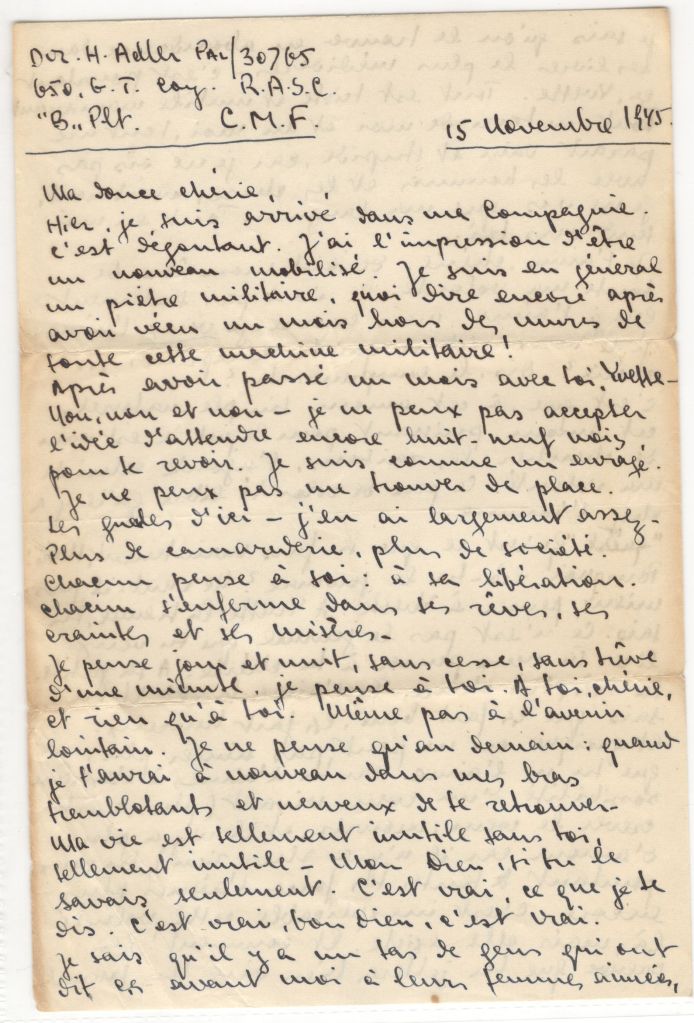 Dvr. H. Adler PAL/30765
650. G. T. Coy. R.A.S.C.
"B„ Plt. C.M.F. 15 Novembre 1945.
Ma douce chérie,
Hier, je suis arrivé dans ma Compagnie.
C'est dégoutant. J'ai l'impression d'être
un nouveau mobilisé. Je suis en général
un piètre militaire, quoi dire encore après
avoir vécu un mois hors des mures de
toute cette machine militaire!
Après avoir passé un mois avec toi, Yvette –
Non, non et non – je ne peux pas accepter
l'idée d'attendre encore huit-neuf mois
pour te revoir. Je suis comme un enragé.
Je ne peux pas me trouver de place.
Les d'ici – j'en ai largement assez.
Plus de camaraderie, plus de société.
Chacun pense à soi: à sa libération.
Chacun s'enferme dans ses rêves, ses
craintes et ses misères –
Je pense jour et nuit, sans cesse, sans trêve
d'une minute, je pense à toi. A toi, chérie,
et rien qu'à toi. Même pas à l'avenir
lointain. Je ne pense qu'au demain: quand
je t'aurai à nouveau dans mes bras
tremblotants et nerveux de te retrouver –
Ma vie est tellement inutile sans toi,
tellement inutile – Mon Dieu, si tu le
savais seulement. C'est vrai, ce que je te
dis. C'est vrai, bon dieu, c'est vrai.
Je sais qu'il y a un tas de gens qui ont
dit ça avant moi à leurs femmes aimées,